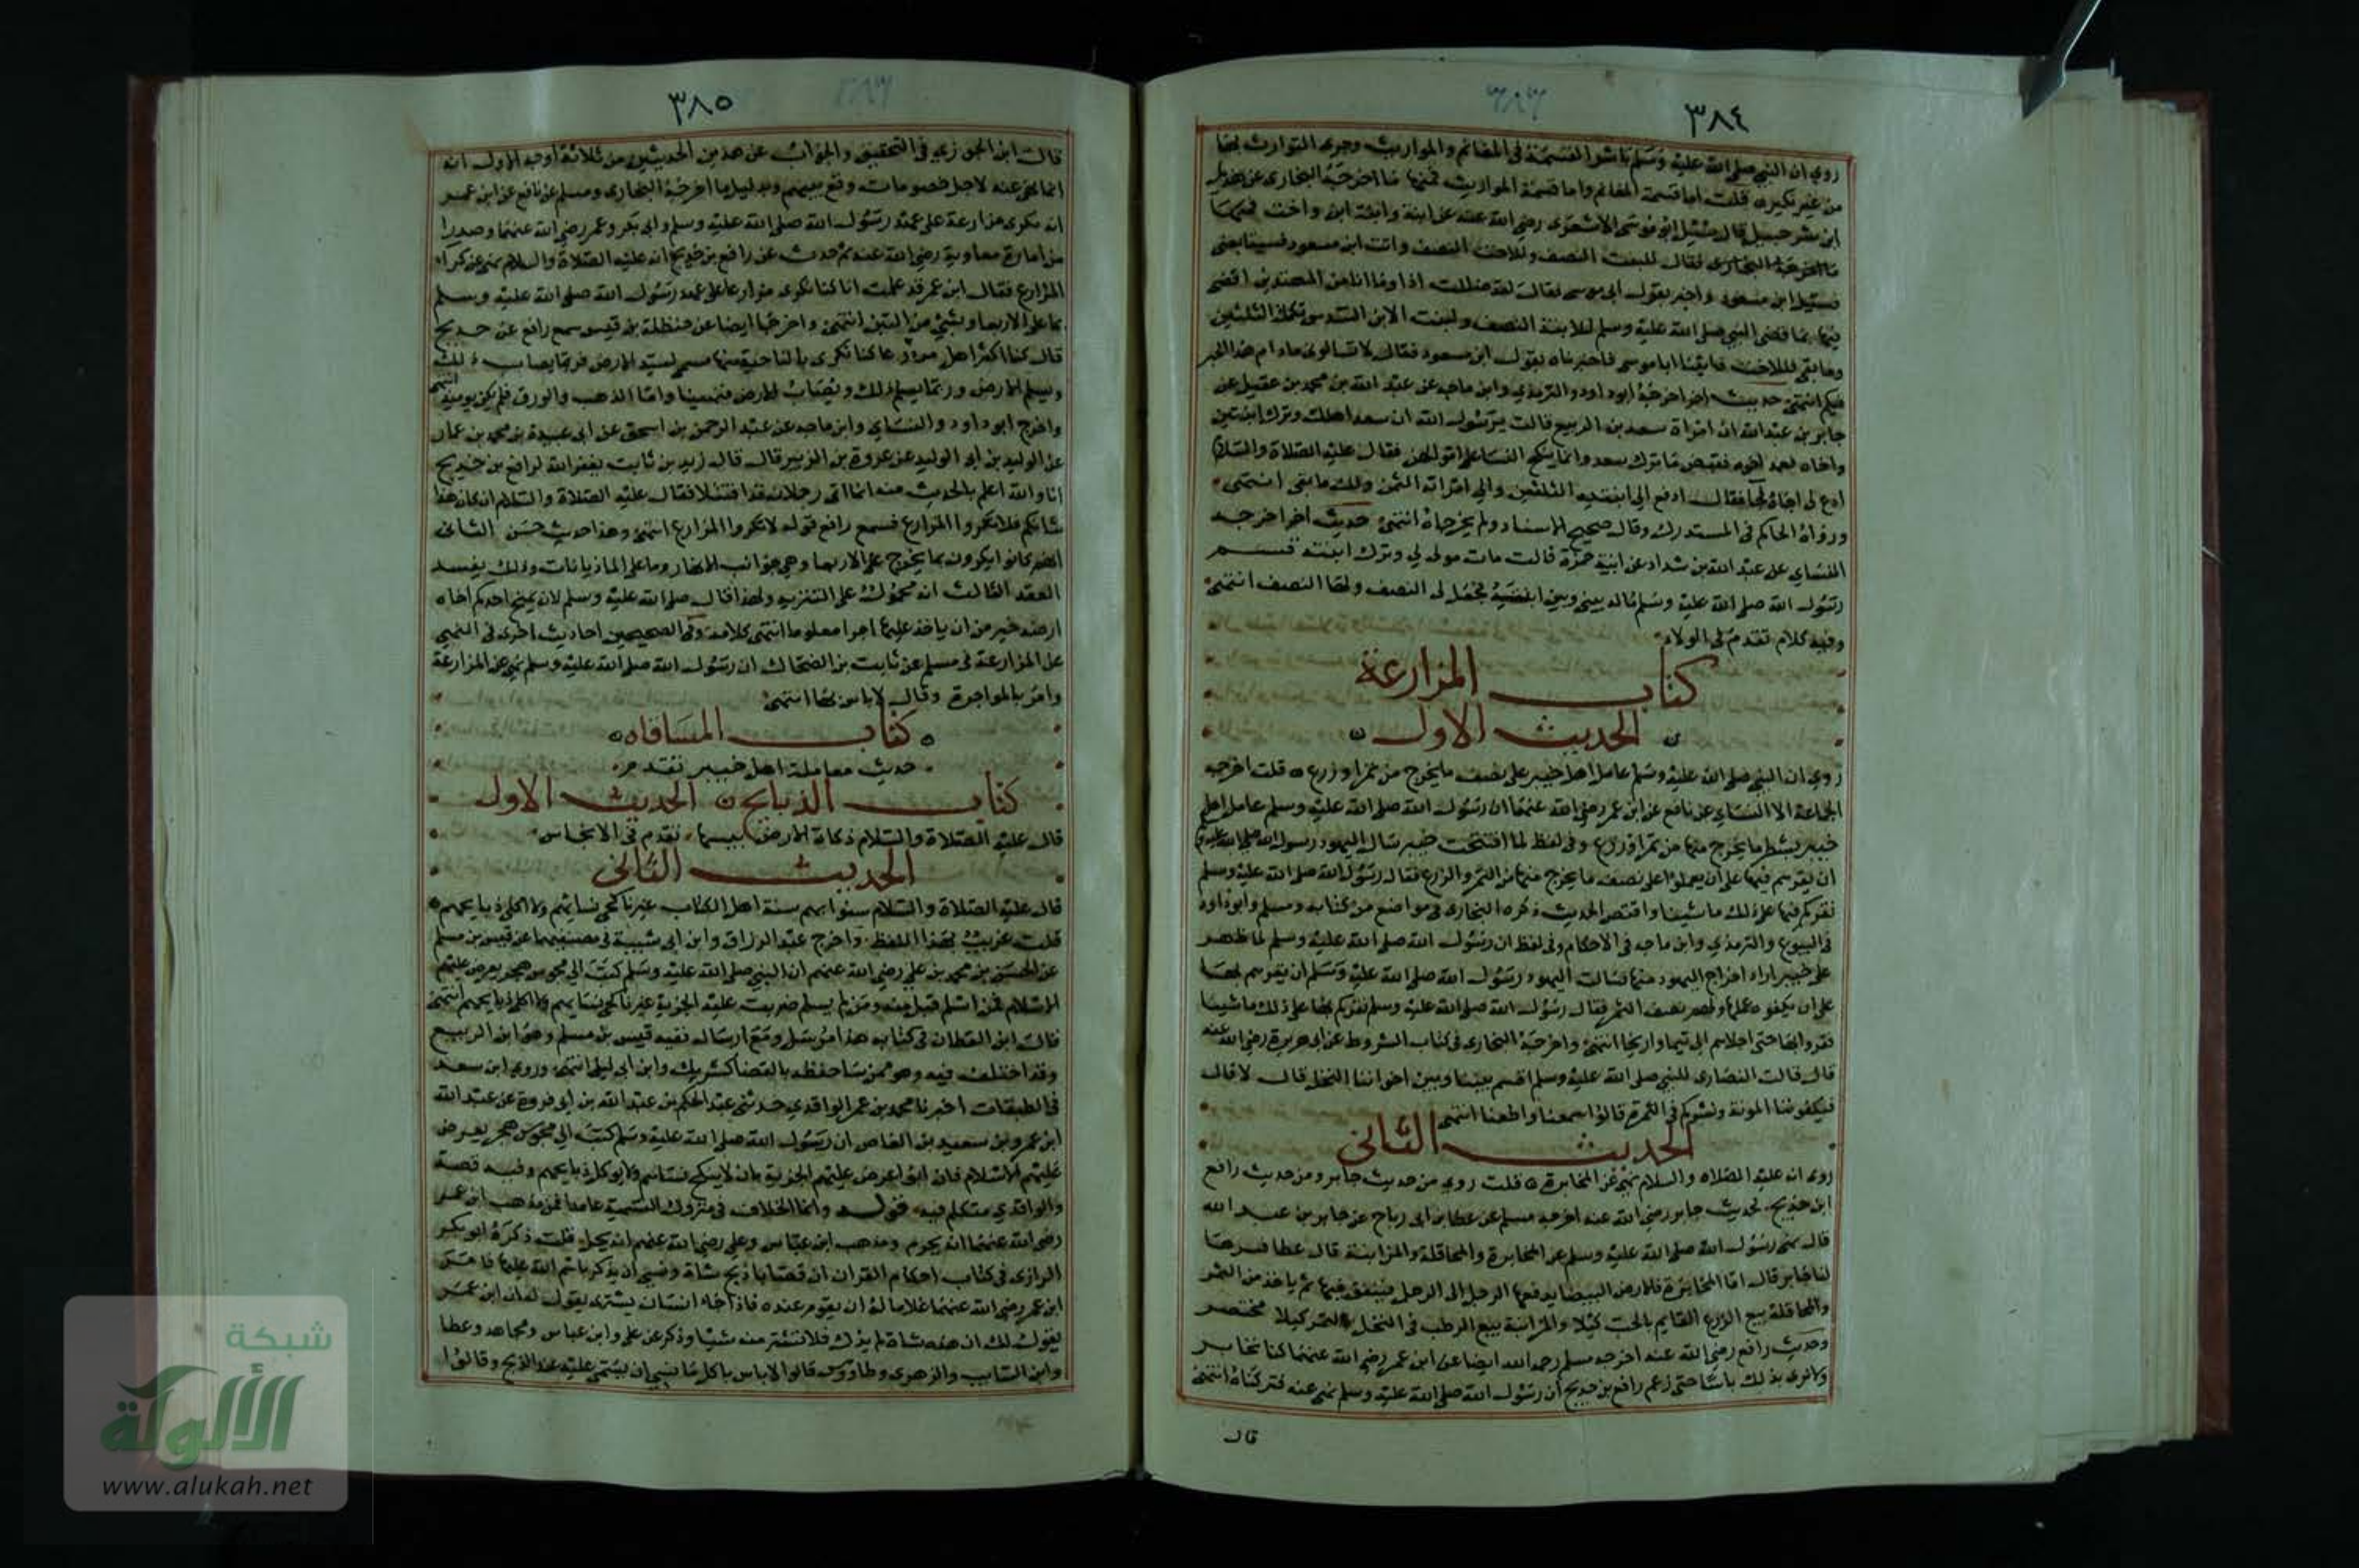 ٣٨٤
روي ان النبي صلى الله عليه وسلم باشر القسمة في المغانم والمواريث وجرى التوارث بها
من غير نكير ه قلت اما قسمة المغانم واما قسمة المواريث فمنها ما اخرجه البخاري عن هزيل
ابن شرحبيل قال سئل ابو موسى الاشعري رضي الله عنه عن ابنة وابنة ابن واخت
فقال للبنت النصف وللاخت النصف وات ابن مسعود فسيتابعني
فسئل ابن مسعود واخبر بقول ابي موسى فقال لقد ضللت اذا وما انا من المهتدين اقضي
فيها بما قضى النبي صلى الله عليه وسلم للابنة النصف ولبنت الابن السدس تكملة الثلثين
وما بقي فللاخت فاتينا ابا موسى فاخبرناه بقول ابن مسعود فقال لا تسالوني مادام هذا الحبر
فيكم انتهى حديث اخر اخرجه ابو داود والترمذي وابن ماجه عن عبد الله بن محمد بن عقيل عن
جابر بن عبد الله ان امراة سعد بن الربيع قالت يرسول الله ان سعدا هلك وترك ابنتين
واخاه فعمد اخوه فقبض ما ترك سعد وانما ينكح النسا على اموالهن فقال عليه الصلاة والسلام
ادع لي اخاه فجا فقال ادفع الى ابنتيه الثلثين والى امراته الثمن ولك ما بقي انتهى
ورواه الحاكم في المستدرك وقال صحيح الاسناد ولم يخرجاه انتهى حديث اخر اخرجه
النساي عن عبد الله بن شداد عن ابنة حمزة قالت مات مولى لي وترك ابنته فقسم
رسول الله صلى الله عليه وسلم ماله بيني وبين ابنته فجعل لي النصف ولها النصف انتهى
وفيه كلام تقدم في الولاء
كتاب المزارعة
الحديث الاول
روي ان النبي صلى الله عليه وسلم عامل اهل خيبر على نصف ما يخرج من ثمر او زرع ه قلت اخرجه
الجماعة الا النساي عن نافع عن ابن عمر رضي الله عنهما ان رسول الله صلى الله عليه وسلم عامل اهل
خيبر بشطر ما يخرج منها من ثمر او زرع وفي لفظ لما افتتحت خيبر سال اليهود رسول الله صلى الله عليه وسلم
ان يقرهم فيها على ان يعملوا على نصف ما يخرج منها من الثمر والزرع فقال رسول الله صلى الله عليه وسلم
نقركم فيها على ذلك ما شينا واقتصر الحديث ذكره البخاري في مواضع من كتابه ومسلم وابو داود
في البيوع والترمذي وابن ماجه في الاحكام وفي لفظ ان رسول الله صلى الله عليه وسلم لما ظهر
على خيبر اراد اخراج اليهود منها فسالت اليهود رسول الله صلى الله عليه وسلم ان يقرهم بها
على ان يكفوه عملها ولهم نصف الثمر فقال رسول الله صلى الله عليه وسلم نقركم بها على ذلك ما شينا
فقروا بها حتى اجلاهم الى تيما واريحا انتهى واخرجه البخاري في كتاب الشروط عن ابي هريرة رضي الله عنه
قال قالت النصارى للنبي صلى الله عليه وسلم اقسم بيننا وبين اخواننا النخل قال لا قال
فيكفوننا المونة ونشركم في الثمرة قالوا سمعنا واطعنا انتهى
الحديث الثاني
روى انه عليه الصلاه والسلام نهى عن المخابرة ه قلت روي من حديث جابر ومن حديث رافع
ابن خديج فحديث جابر رضي الله عنه اخرجه مسلم عن عطا بن ابي رباح عن جابر بن عبد الله
قال نهى رسول الله صلى الله عليه وسلم عن المخابرة والمحاقلة والمزابنة قال عطا فسرها
لنا جابر قال اما المخابرة فالارض البيضا يدفعها الرجل الى الرجل فينفق فيها ثم ياخذ من الثمر
والمحاقلة بيع الزرع القايم بالحب كيلا والمزابنة بيع الرطب في النخل بالتمر كيلا مختصر
وحديث رافع رضي الله عنه اخرجه مسلم رحمه الله ايضا عن ابن عمر رضي الله عنهما كنا نخابر
ولا نرى بذلك باسا حتى زعم رافع بن خديج ان رسول الله صلى الله عليه وسلم نهى عنه فتركناه انتهى
قال
٣٨٥
قال ابن الجوزي في التحقيق والجواب عن هذين الحديثين من ثلاثة اوجه الاول انه
انما نهى عنه لاجل خصومات وقع بينهم وبدليل ما اخرجه البخاري ومسلم عن نافع عن ابن عمر
انه يكري مزارعه على عهد رسول الله صلى الله عليه وسلم وابي بكر وعمر رضي الله عنهما وصدرا
من امارة معاوية رضي الله عنه ثم حدث عن رافع بن خديج انه عليه الصلاة والسلام نهى عن كراء
المزارع فقال ابن عمر قد علمت انا كنا نكري مزارعنا على عهد رسول الله صلى الله عليه وسلم
بما على الاربعا وبشيء من التبن انتهى واخرجا ايضا عن حنظلة بن قيس سمع رافع عن خديج
قال كنا اكثر اهل مزدرعا كنا نكري بالناحية منها مسمى لسيد الارض فربما يصاب ذلك
ويسلم الارض وربما يسلم ذلك ويصاب الارض فنهينا واما الذهب والورق فلم يكن يوميذ انتهى
واخرج ابو داود والنساي وابن ماجه عن عبد الرحمن بن اسحق عن ابي عبيدة بن محمد بن عمار
عن الوليد بن ابي الوليد عن عروة بن الزبير قال قال زيد بن ثابت يغفر الله لرافع بن خديج
انا والله اعلم بالحديث منه انما اتى رجلان قد اقتتلا فقال عليه الصلاة والسلام ان كان هذا
شانكم فلا تكروا المزارع فسمع رافع قوله لا تكروا المزارع انتهى وهذا حديث حسن الثاني
انهم كانوا يكرون بما يخرج على الاربعا وهي جوانب الانهار وما على الماذيانات وذلك يفسد
العقد الثالث انه محمول على التنزيه ولهذا قال صلى الله عليه وسلم لان يمنح احدكم اخاه
ارضه خير من ان ياخذ عليها اجرا معلوما انتهى كلامه وفي الصحيحين احاديث اخرى في النهي
عن المزارعة في مسلم عن ثابت بن الضحاك ان رسول الله صلى الله عليه وسلم نهى عن المزارعة
وامر بالمواجرة وقال لا باس بها انتهى
ه كتاب المساقاه ه
حديث معاملة اهل خيبر تقدم
كتاب الذبايح ه الحديث الاول
قال عليه الصلاة والسلام ذكاة الارض يبسها تقدم في الانجاس
الحديث الثاني
قال عليه الصلاة والسلام سنوا بهم سنة اهل الكتاب غير ناكحي نسايهم ولا اكلي ذبايحهم ه
قلت غريب بهذا اللفظ واخرج عبد الرزاق وابن ابي شيبة في مصنفيهما عن قيس بن مسلم
عن الحسن بن محمد بن علي رضي الله عنهم ان النبي صلى الله عليه وسلم كتب الى مجوس هجر يعرض عليهم
الاسلام فمن اسلم قبل منه ومن لم يسلم ضربت عليه الجزية غير ناكحي نسايهم ولا اكلي ذبايحهم انتهى
قال ابن القطان في كتابه هذا مرسل ومع ارساله ففيه قيس بن مسلم وهو ابن الربيع
وقد اختلف فيه وهو ممن سا حفظه بالقضا كشريك وابن ابي ليلى انتهى وروى ابن سعد
في الطبقات اخبرنا محمد بن عمر الواقدي حدثني عبد الحكم بن عبد الله بن ابي فروة عن عبد الله
ابن عمرو بن سعيد بن العاص ان رسول الله صلى الله عليه وسلم كتب الى مجوس هجر يعرض
عليهم الاسلام فان ابوا عرض عليهم الجزية بان لا ينكح نساهم ولا يوكل ذبايحهم وفيه قصة
والواقدي متكلم فيه قوله وانما الخلاف في متروك التسمية عامدا فمن مذهب ابن عمر
رضي الله عنهما انه يحرم ومذهب ابن عباس وعلي رضي الله عنهم انه يحل قلت ذكره ابو بكر
الرازي في كتاب احكام القران ان قصابا ذبح شاة ونسي ان يذكر باسم الله عليها فامر
ابن عمر رضي الله عنهما غلاما له ان يقوم عنده فاذا جاء انسان يشتري يقول له ان ابن عمر
يقول لك ان هذه شاة لم يذك فلا تشتر منه شيا وذكر عن علي وابن عباس ومجاهد وعطا
وابن السايب والزهري وطاووس قالوا لا باس باكل ما نسي ان يسمى عليه عند الذبح وقالوا
شبكة
الألوكة
www.alukah.net